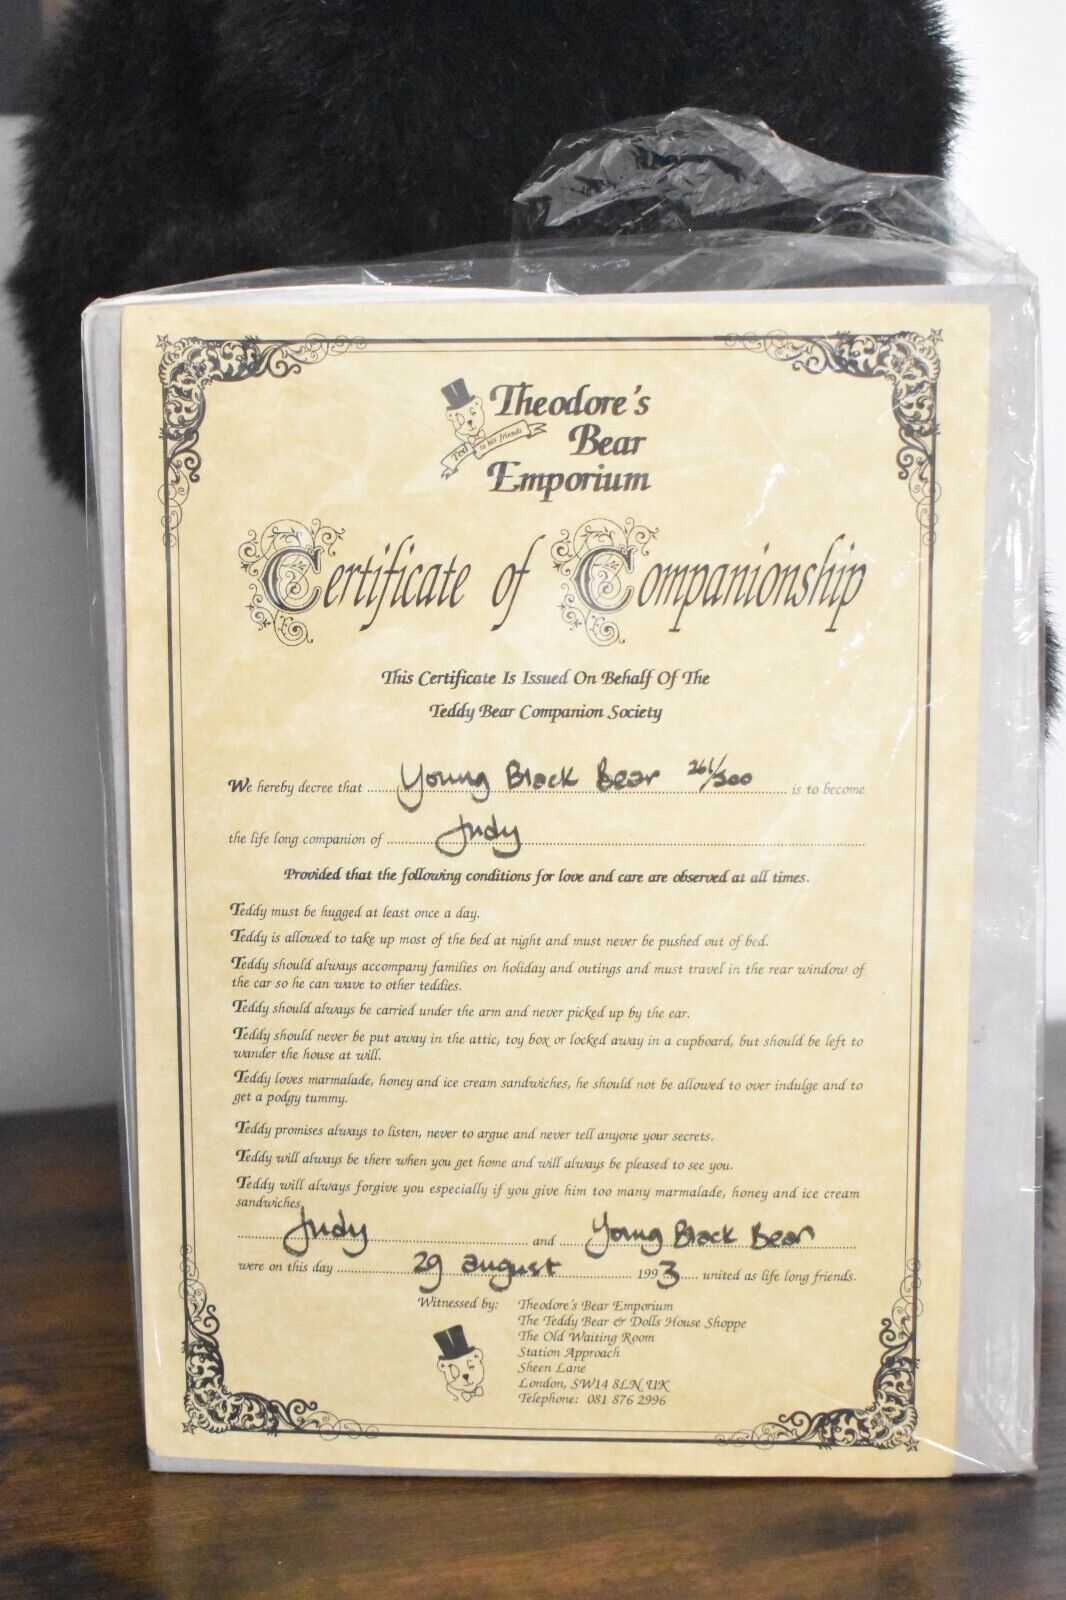 Theodore's
Bear
Emporium
Ted to his friends
Certificate of Companionship
This Certificate Is Issued On Behalf Of The
Teddy Bear Companion Society
We hereby decree that Young Black Bear 261/500 is to become
the life long companion of Judy
Provided that the following conditions for love and care are observed at all times.
Teddy must be hugged at least once a day.
Teddy is allowed to take up most of the bed at night and must never be pushed out of bed.
Teddy should always accompany families on holiday and outings and must travel in the rear window of
the car so he can wave to other teddies.
Teddy should always be carried under the arm and never picked up by the ear.
Teddy should never be put away in the attic, toy box or locked away in a cupboard, but should be left to
wander the house at will.
Teddy loves marmalade, honey and ice cream sandwiches, he should not be allowed to over indulge and to
get a podgy tummy.
Teddy promises always to listen, never to argue and never tell anyone your secrets.
Teddy will always be there when you get home and will always be pleased to see you.
Teddy will always forgive you especially if you give him too many marmalade, honey and ice cream
sandwiches.
Judy and Young Black Bear
were on this day 29 august 1993 united as life long friends.
Witnessed by: Theodore's Bear Emporium
The Teddy Bear & Dolls House Shoppe
The Old Waiting Room
Station Approach
Sheen Lane
London, SW14 8LN UK
Telephone: 081 876 2996